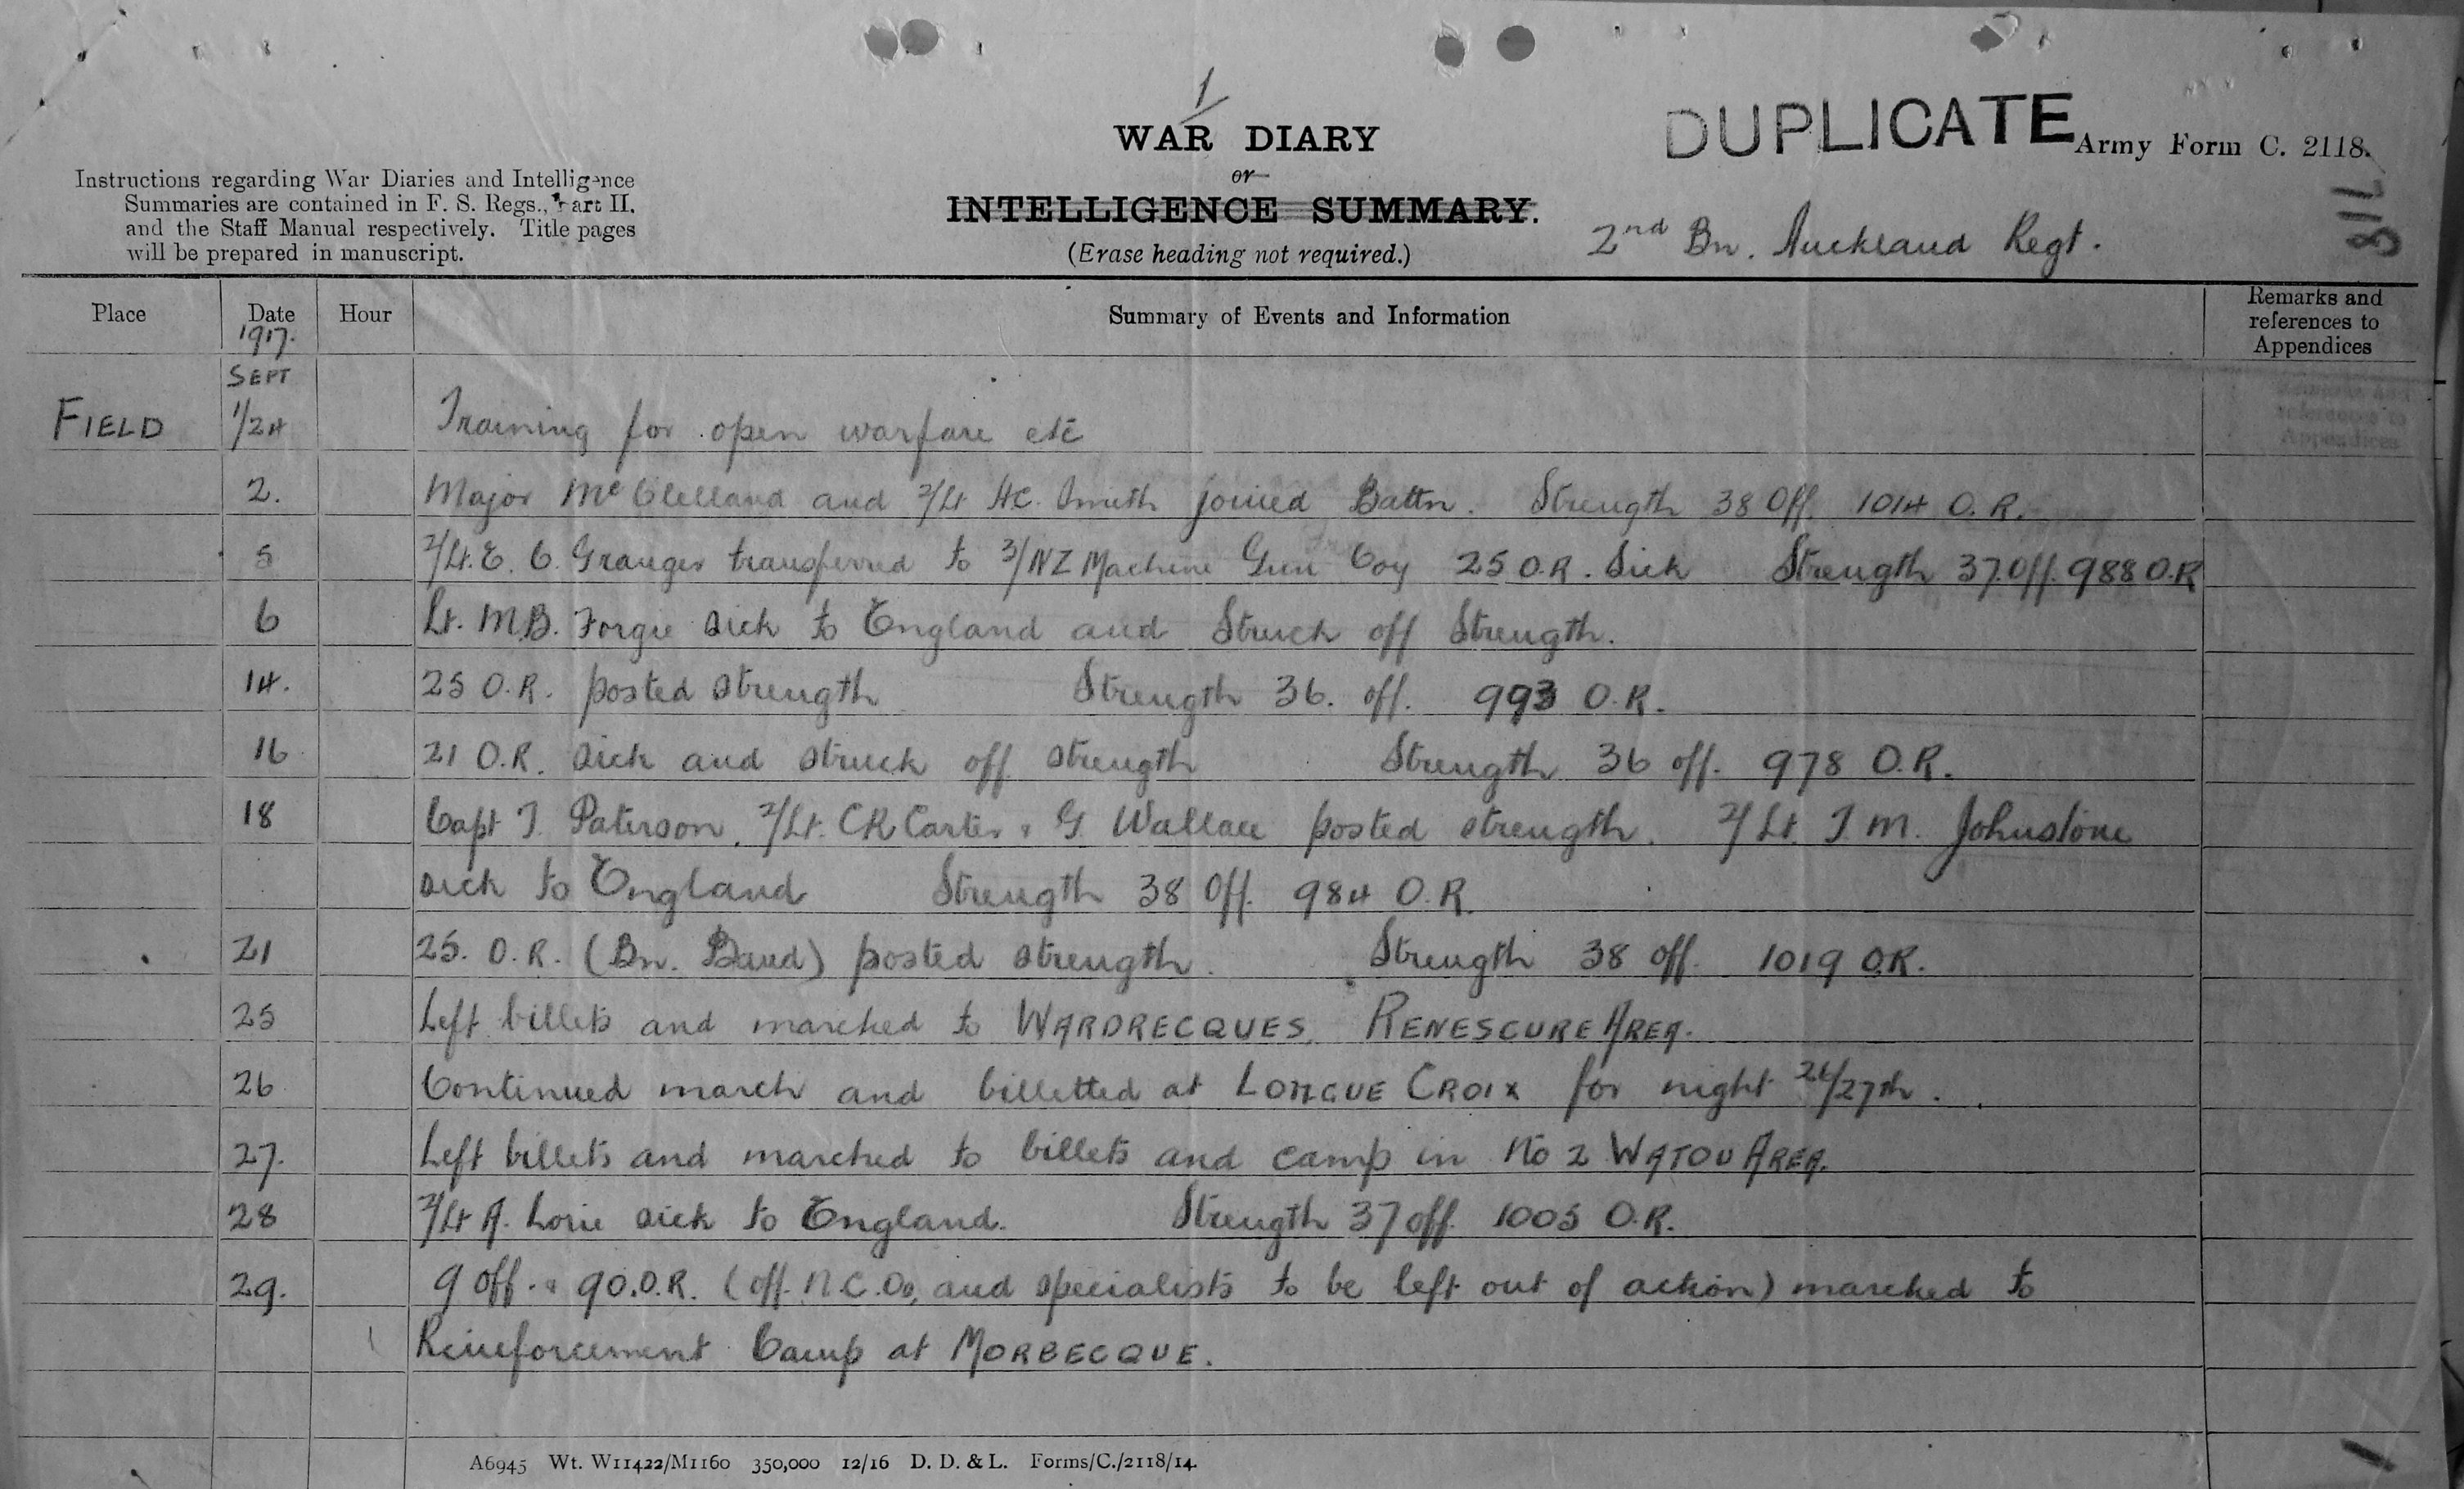 1
WAR DIARY
or
INTELLIGENCE SUMMARY.
(Erase heading not required.)
DUPLICATE
Army Form C. 2118.
Instructions regarding War Diaries and Intelligence
Summaries are contained in F. S. Regs., Part II.
and the Staff Manual respectively. Title pages
will be prepared in manuscript.
2nd Bn. Auckland Regt.
718
Place Date Hour Summary of Events and Information Remarks and references to Appendices
1917.
SEPT
FIELD 1/24 Training for open warfare etc
2. Major McClelland and 2/Lt H.C. Smith joined Battn. Strength 38 Off. 1014 O.R.
5 2/Lt. E. C. Granger transferred to 3/NZ Machine Gun Coy 25 O.R. Sick Strength 37. Off. 988 O.R
6 Lt. M.B. Forgie sick to England and Struck off Strength.
14. 25 O.R. posted strength Strength 36. off. 993 O.R.
16 21 O.R. sick and struck off strength Strength 36 off. 978 O.R.
18 Capt J. Paterson, 2/Lt. CR Carter & G. Wallace posted strength. 2/Lt. J. M. Johnstone
sick to England Strength 38 Off. 984 O.R.
21 25. O.R. (Bn. Band) posted strength. Strength 38 off. 1019 O.R.
25 Left billets and marched to WARDRECQUES, RENESCURE AREA.
26 Continued march and billetted at LONGUE CROIX for night 26/27th.
27. Left billets and marched to billets and camp in No 2 WATOU AREA.
28 2/Lt A. Lorie sick to England. Strength 37 off. 1005 O.R.
29. 9 off. & 90. O.R. (off. N.C.Os, and specialists to be left out of action) marched to
Reinforcement Camp at MORBECQUE.
A6945 Wt. W11422/M1160 350,000 12/16 D. D. & L. Forms/C./2118/14.